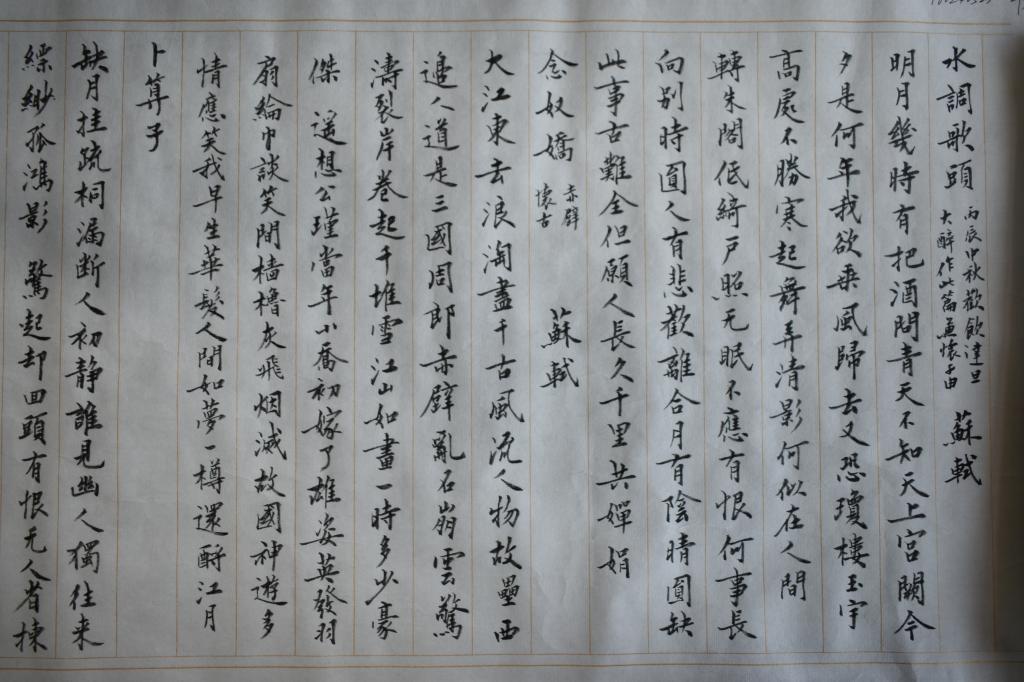 水調歌頭 丙辰中秋歡飲達旦大醉作此篇兼懷子由 蘇軾
明月幾時有把酒問青天不知天上宮闕今
夕是何年我欲乘風歸去又恐瓊樓玉宇
高處不勝寒起舞弄清影何似在人間
轉朱閣低綺戶照无眠不應有恨何事長
向別時圓人有悲歡離合月有陰晴圓缺
此事古難全但願人長久千里共嬋娟
念奴嬌 赤壁懷古 蘇軾
大江東去浪淘盡千古風流人物故壘西
邊人道是三國周郎赤壁亂石崩雲驚
濤裂岸卷起千堆雪江山如畫一時多少豪
傑 遥想公瑾當年小喬初嫁了雄姿英發羽
扇綸巾談笑間樯櫓灰飛烟滅故國神遊多
情應笑我早生華髮人間如夢一樽還酹江月
卜算子
缺月挂疏桐漏断人初静誰見幽人獨往来
縹緲孤鴻影 驚起却回頭有恨无人省揀